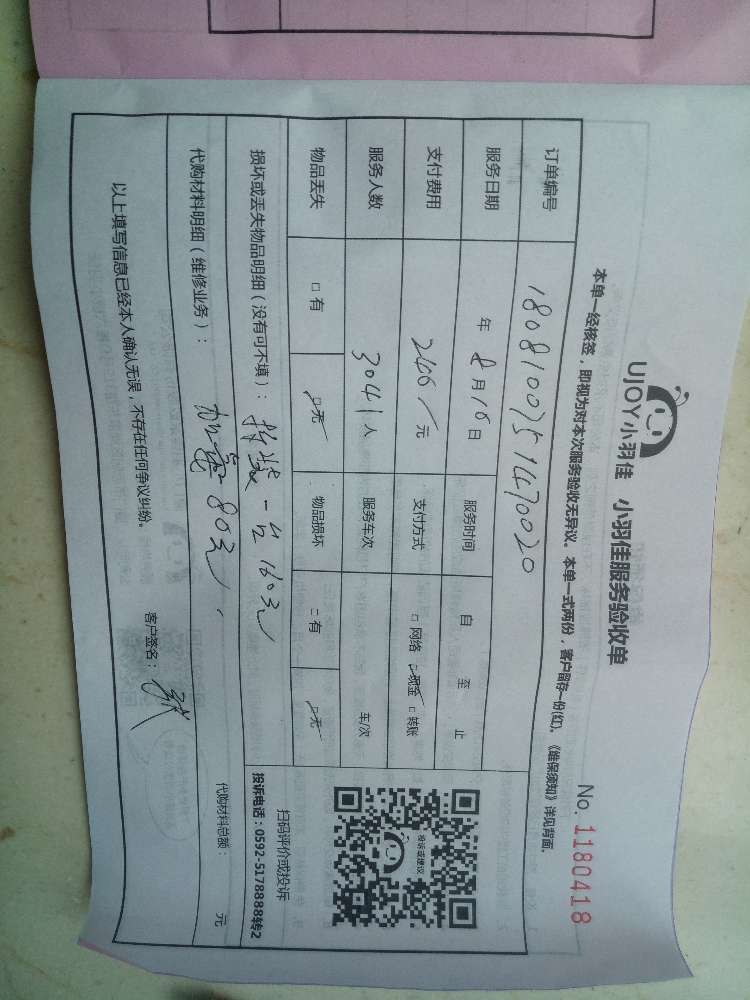 UJOY小羽佳 小羽佳服务验收单
No. 1180418
本单一经核签，即视为对本次服务验收无异议。本单一式两份，客户留存一份(红)。《维保须知》详见背面。
订单编号 1808100751470020
服务日期 年 8月16日 服务时间 自 至 止
支付费用 240 元 支付方式 □ 网络 □ 现金 □ 转账
服务人数 3041人 服务车次 车/次
物品丢失 □ 有 □ 无 物品损坏 □ 有 □ 无
投诉或建议
扫码评价或投诉
投诉电话：0592-5178888转2
损坏或丢失物品明细（没有可不填）： 拆装一台160元
代购材料明细（维修业务）： 80元
代购材料总额： 元
以上填写信息已经本人确认无误，不存在任何争议纠纷。
客户签名：